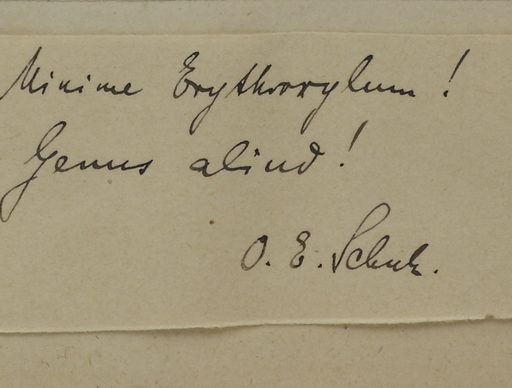 Minime Erythroxylum!
Genus aliud!
O. E. Schulz.